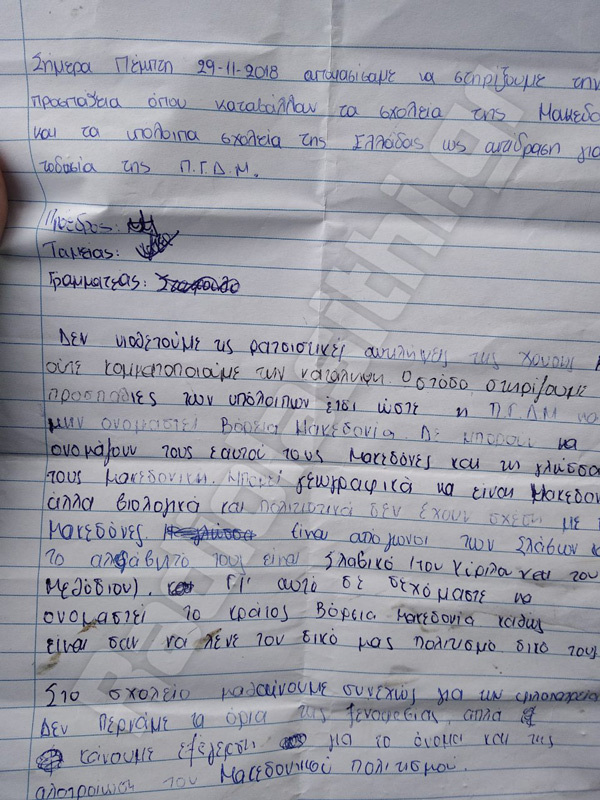 Σήμερα Πέμπτη 29-11-2018 αποφασίσαμε να στηρίξουμε την
προσπάθεια όπου καταβάλλουν τα σχολεία της Μακεδο
και τα υπόλοιπα σχολεία της Ελλάδας ως αντίδραση για
τοδοσία της Π.Γ.Δ.Μ.
Πρόεδρος:
Ταμείας:
Γραμματέας:
Δεν υιοθετούμε τις ρατσιστικές αντιλήψεις της
ούτε κομματοποιούμε την κατάληψη. Ωστόσο, στηρίζουμε
προσπάθιες των υπόλοιπων έτσι ώστε η Π.Γ.Δ.Μ να
μην ονομαστεί Βόρεια Μακεδονία. Δε μπορούν να
ονομάζουν τους εαυτού τους Μακεδόνες και τη γλώσσα
τους μακεδονική. Μπορεί γεωγραφικά να είναι Μακεδον
άλλα βιολογικά και πολιτιστικά δεν έχουν σχέση με
Μακεδόνες είναι απόγωνοι των Σλάβων
το αλφάβητό τους είναι Σλαβικό (του Κύριλα και του
Μεθόδιου). Γι' αυτό δε δεχόμαστε να
ονομαστεί το κράτος Βόρεια Μακεδονία καθώς
είναι σαν να λένε τον δικό μας πολιτισμό δικό τους
Στο σχολείο μαθαίνουμε συνεχώς για την
Δεν περνάμε τα όρια της ξενοφοβίας, αλλά
κάνουμε εξέγερση για το όνομα και της
αλοτροίωση του Μακεδονικού πολιτισμού.
Radiopithi.gr